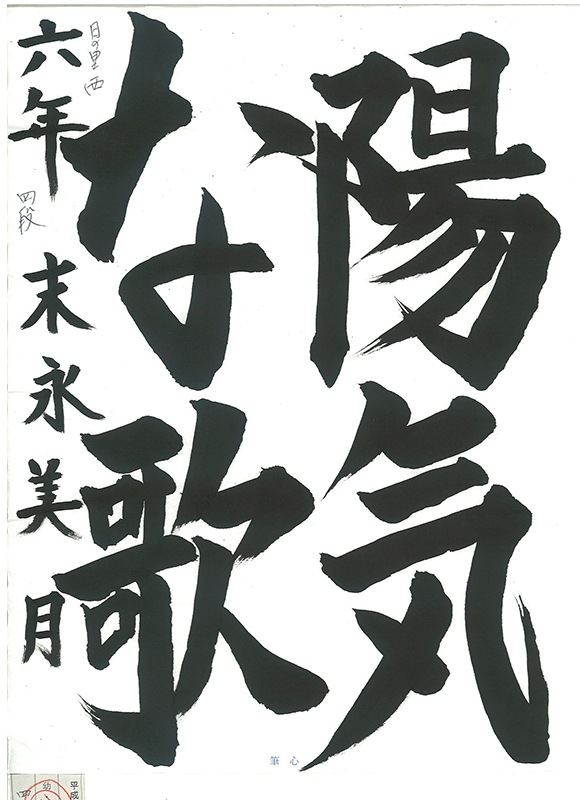 陽気
な歌
日の里西
六年 四段 末永美月
心筆
平成
幼
四